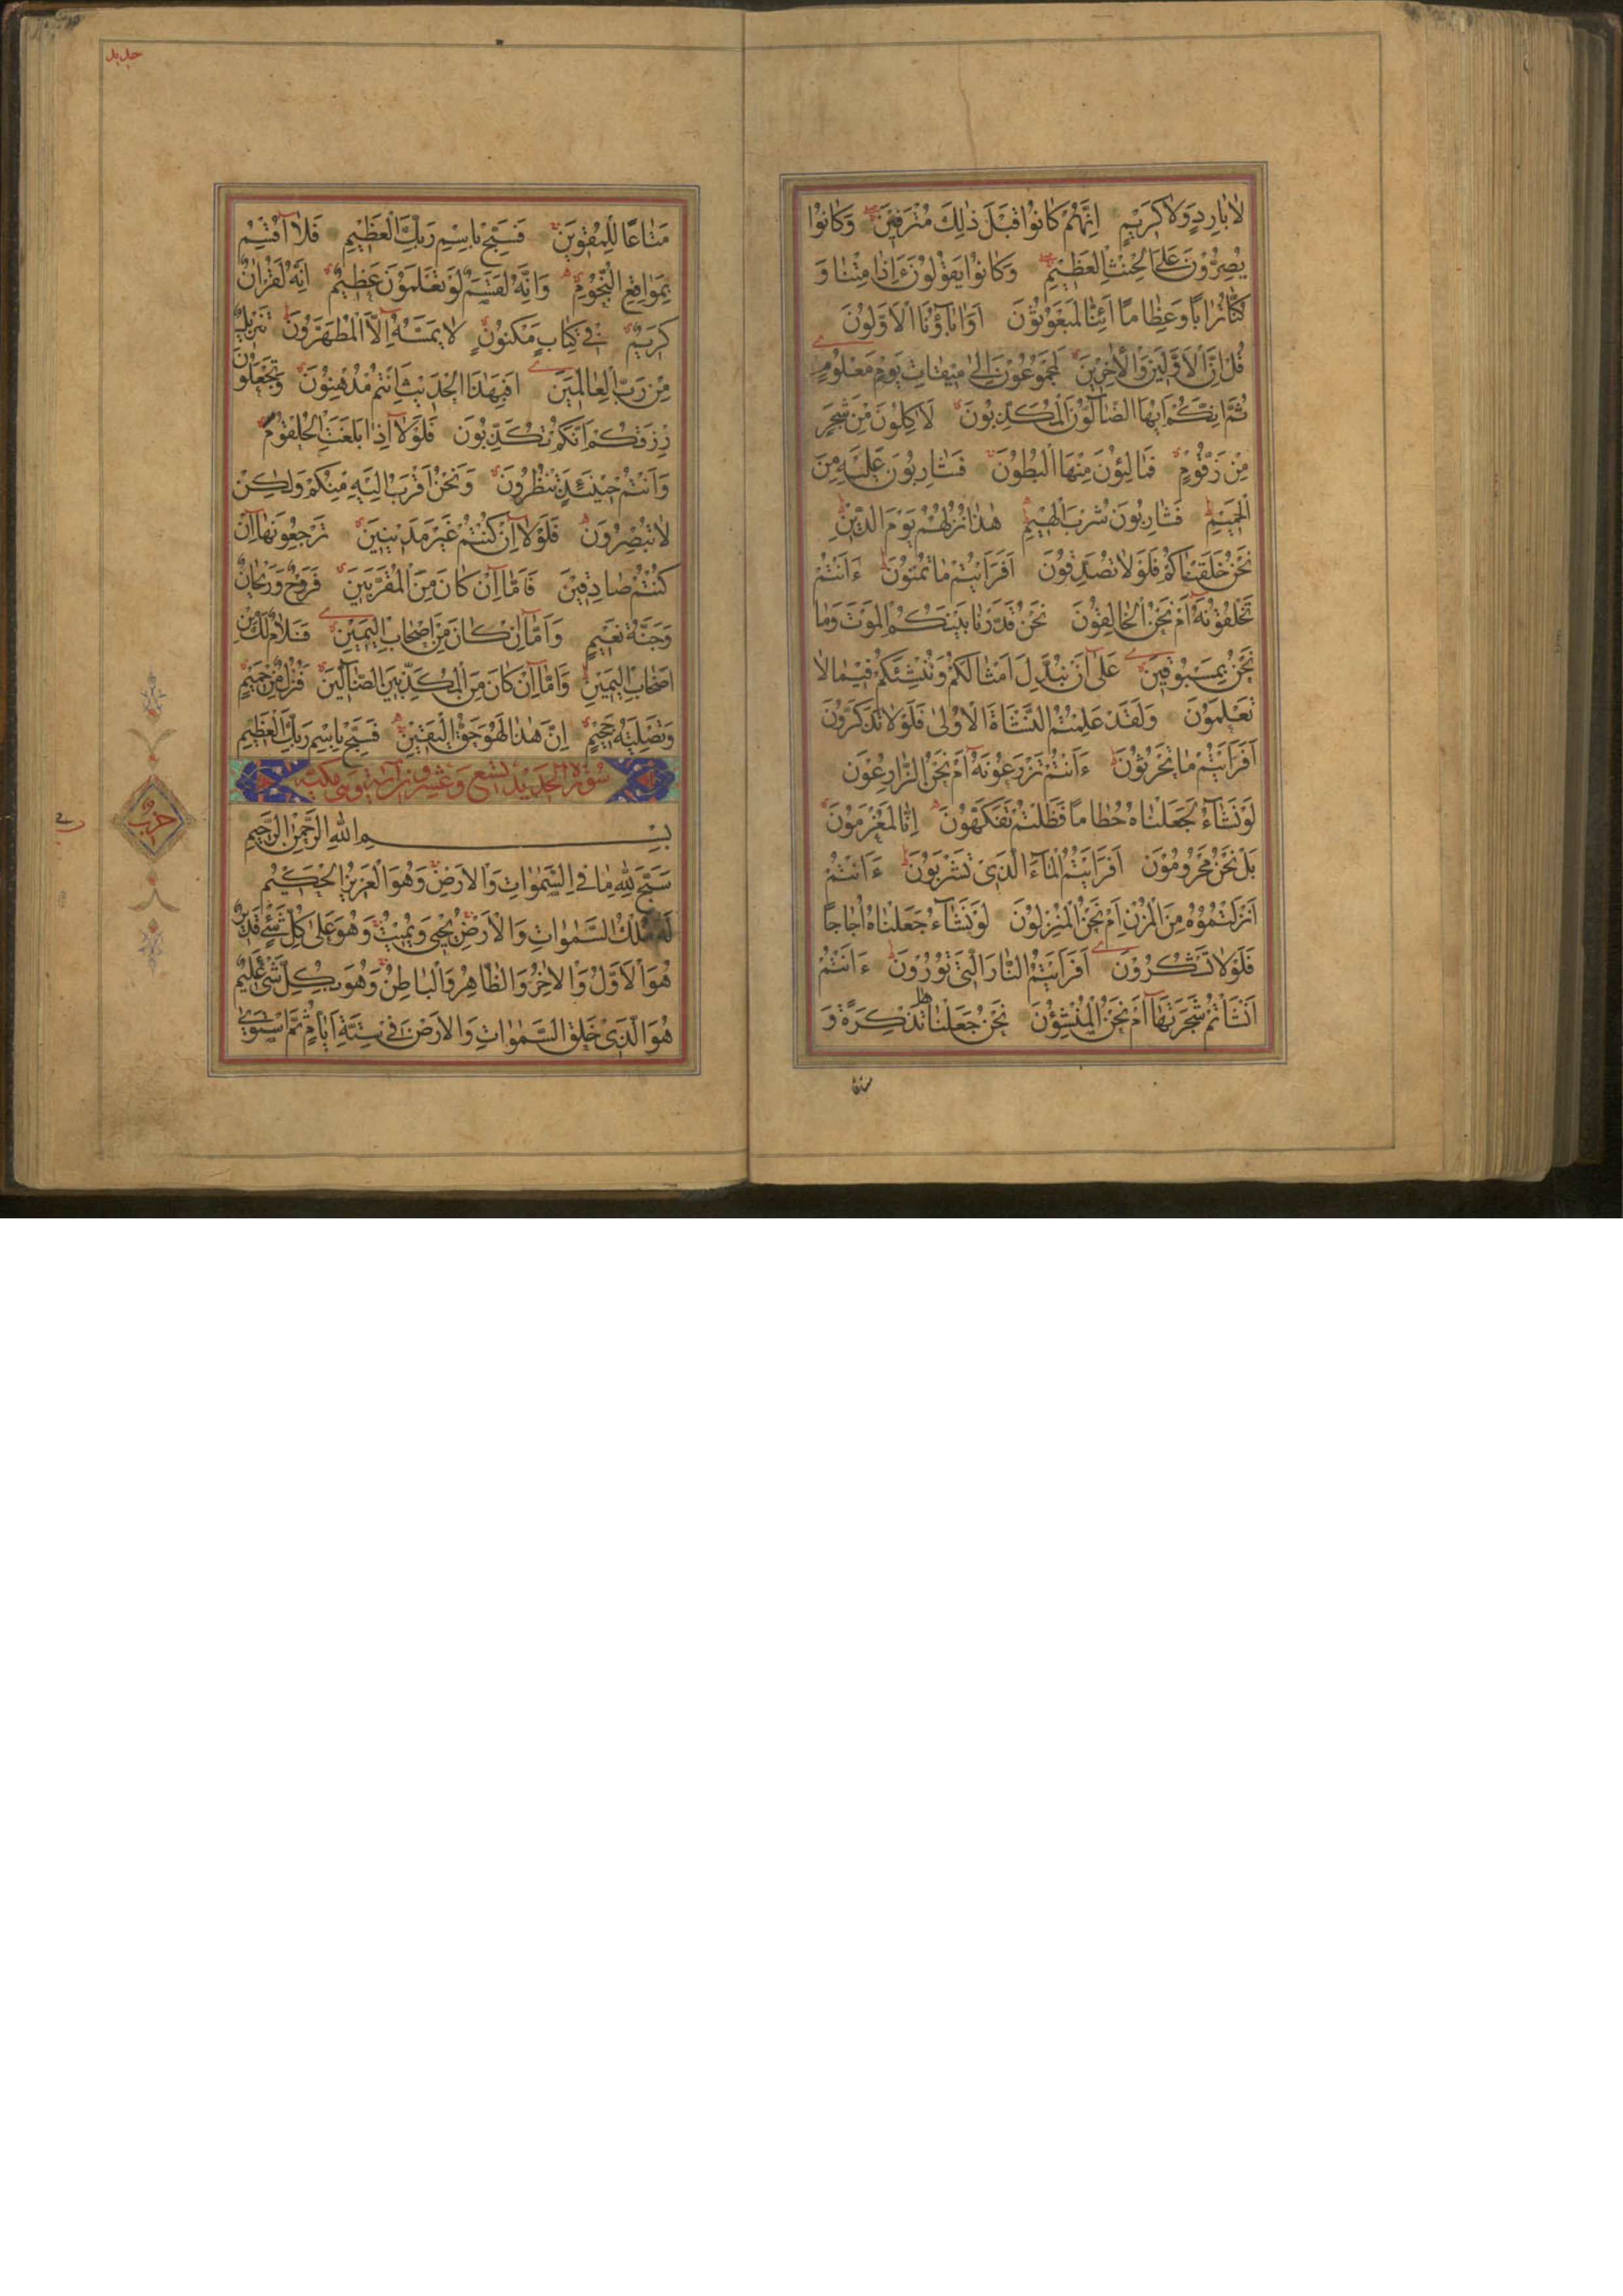 لَا بَارِدٍ وَلَا كَرِيمٍ اِنَّهُمْ كَانُوا قَبْلَ ذٰلِكَ مُتْرَفِينَ وَكَانُوا
يُصِرُّونَ عَلَى الْحِنْثِ الْعَظِيمِ وَكَانُوا يَقُولُونَ ءَاِذَا مِتْنَا وَ
كُنَّا تُرَابًا وَعِظَامًا اَئِنَّا لَمَبْعُوثُونَ اَوَاٰبَاؤُنَا الْاَوَّلُونَ
قُلْ اِنَّ الْاَوَّلِينَ وَالْاٰخِرِينَ لَمَجْمُوعُونَ اِلٰى مِيقَاتِ يَوْمٍ مَعْلُومٍ
ثُمَّ اِنَّكُمْ اَيُّهَا الضَّآلُّونَ الْمُكَذِّبُونَ لَاٰكِلُونَ مِنْ شَجَرٍ
مِنْ زَقُّومٍ فَمَالِؤُنَ مِنْهَا الْبُطُونَ فَشَارِبُونَ عَلَيْهِ مِنَ
الْحَمِيمِ فَشَارِبُونَ شُرْبَ الْهِيمِ هٰذَا نُزُلُهُمْ يَوْمَ الدِّينِ
نَحْنُ خَلَقْنَاكُمْ فَلَوْلَا تُصَدِّقُونَ اَفَرَاَيْتُمْ مَا تُمْنُونَ ءَاَنْتُمْ
تَخْلُقُونَهُ اَمْ نَحْنُ الْخَالِقُونَ نَحْنُ قَدَّرْنَا بَيْنَكُمُ الْمَوْتَ وَمَا
نَحْنُ بِمَسْبُوقِينَ عَلٰى اَنْ نُبَدِّلَ اَمْثَالَكُمْ وَنُنْشِئَكُمْ فِيمَا لَا
تَعْلَمُونَ وَلَقَدْ عَلِمْتُمُ النَّشْاَةَ الْاُولٰى فَلَوْلَا تَذَكَّرُونَ
اَفَرَاَيْتُمْ مَا تَحْرُثُونَ ءَاَنْتُمْ تَزْرَعُونَهُ اَمْ نَحْنُ الزَّارِعُونَ
لَوْ نَشَآءُ لَجَعَلْنَاهُ حُطَامًا فَظَلْتُمْ تَفَكَّهُونَ اِنَّا لَمُغْرَمُونَ
بَلْ نَحْنُ مَحْرُومُونَ اَفَرَاَيْتُمُ الْمَآءَ الَّذِى تَشْرَبُونَ ءَاَنْتُمْ
اَنْزَلْتُمُوهُ مِنَ الْمُزْنِ اَمْ نَحْنُ الْمُنْزِلُونَ لَوْ نَشَآءُ جَعَلْنَاهُ اُجَاجًا
فَلَوْلَا تَشْكُرُونَ اَفَرَاَيْتُمُ النَّارَ الَّتِى تُورُونَ ءَاَنْتُمْ
اَنْشَاْتُمْ شَجَرَتَهَا اَمْ نَحْنُ الْمُنْشِؤُنَ نَحْنُ جَعَلْنَاهَا تَذْكِرَةً وَ
حديد
مَتَاعًا لِلْمُقْوِينَ فَسَبِّحْ بِاسْمِ رَبِّكَ الْعَظِيمِ فَلَا اُقْسِمُ
بِمَوَاقِعِ النُّجُومِ وَاِنَّهُ لَقَسَمٌ لَوْ تَعْلَمُونَ عَظِيمٌ اِنَّهُ لَقُرْاٰنٌ
كَرِيمٌ فِى كِتَابٍ مَكْنُونٍ لَا يَمَسُّهُ اِلَّا الْمُطَهَّرُونَ تَنْزِيلٌ
مِنْ رَبِّ الْعَالَمِينَ اَفَبِهٰذَا الْحَدِيثِ اَنْتُمْ مُدْهِنُونَ وَتَجْعَلُونَ
رِزْقَكُمْ اَنَّكُمْ تُكَذِّبُونَ فَلَوْلَا اِذَا بَلَغَتِ الْحُلْقُومَ
وَاَنْتُمْ حِينَئِذٍ تَنْظُرُونَ وَنَحْنُ اَقْرَبُ اِلَيْهِ مِنْكُمْ وَلٰكِنْ
لَا تُبْصِرُونَ فَلَوْلَا اِنْ كُنْتُمْ غَيْرَ مَدِينِينَ تَرْجِعُونَهَا اِنْ
كُنْتُمْ صَادِقِينَ فَاَمَّا اِنْ كَانَ مِنَ الْمُقَرَّبِينَ فَرَوْحٌ وَرَيْحَانٌ
وَجَنَّةُ نَعِيمٍ وَاَمَّا اِنْ كَانَ مِنْ اَصْحَابِ الْيَمِينِ فَسَلَامٌ لَكَ مِنْ
اَصْحَابِ الْيَمِينِ وَاَمَّا اِنْ كَانَ مِنَ الْمُكَذِّبِينَ الضَّآلِّينَ فَنُزُلٌ مِنْ حَمِيمٍ
وَتَصْلِيَةُ جَحِيمٍ اِنَّ هٰذَا لَهُوَ حَقُّ الْيَقِينِ فَسَبِّحْ بِاسْمِ رَبِّكَ الْعَظِيمِ
سُورَةُ الْحَدِيدِ تِسْعَ وَعِشْرُونَ اٰيَةً وَهِىَ مَكِّيَّة
بِسْمِ اللهِ الرَّحْمٰنِ الرَّحِيمِ
سَبَّحَ لِلّٰهِ مَا فِى السَّمٰوَاتِ وَالْاَرْضِ وَهُوَ الْعَزِيزُ الْحَكِيمُ
لَهُ مُلْكُ السَّمٰوَاتِ وَالْاَرْضِ يُحْيِى وَيُمِيتُ وَهُوَ عَلٰى كُلِّ شَىْءٍ قَدِيرٌ
هُوَ الْاَوَّلُ وَالْاٰخِرُ وَالظَّاهِرُ وَالْبَاطِنُ وَهُوَ بِكُلِّ شَىْءٍ عَلِيمٌ
هُوَ الَّذِى خَلَقَ السَّمٰوَاتِ وَالْاَرْضَ فِى سِتَّةِ اَيَّامٍ ثُمَّ اسْتَوٰى
حزب